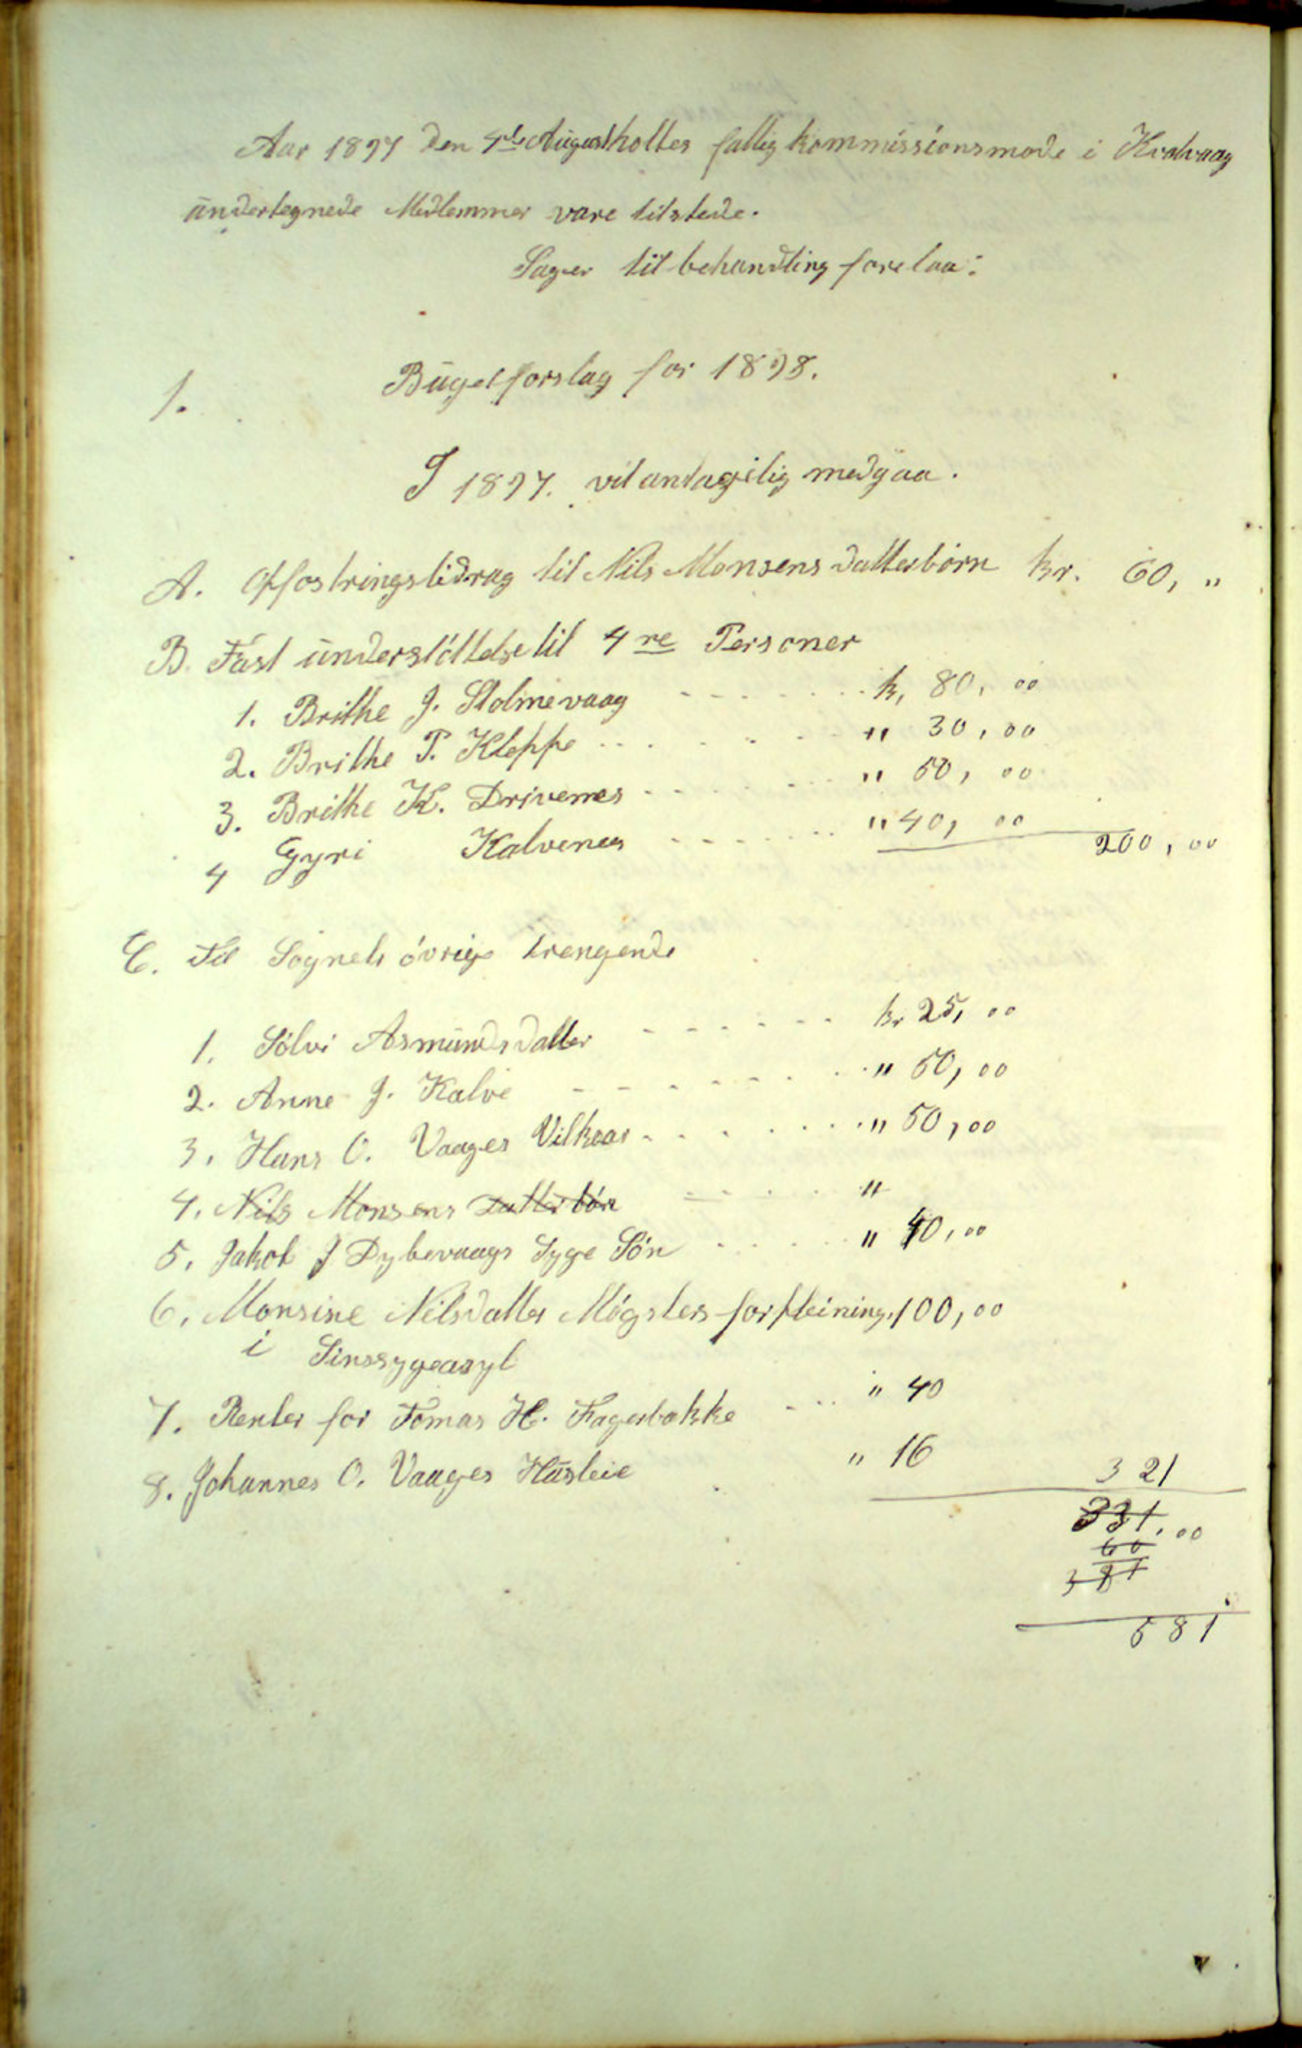 Aar 1897 den 4de August holtes fattig kommissionsmøde i Kvalvaag
undertegnede Medlemmer vare tilstede.
Sager til behandling forelaa:
1. Bugetforslag for 1898.
I 1897. vil antagelig medgaa.
A. Opfostringsbidrag til Nils Monsens datterbørn kr. 60, "
B. Fast understøttelse til 4re Personer
1. Brithe J. Stolmevaag - - - - k, 80, 00
2. Brithe P. Kleppe - - - - " 30, 00
3. Brithe K. Drivenes - - - - " 50, 00
4 Gyri Kalvenes - - - - " 40, 00 200, 00
C. Til Sognets øvrige trengende
1. Sølvi Asmundsdatter - - - - kr 25, 00
2. Anne J. Kalve - - - - " 50, 00
3. Hans O. Vaages Vilkaar - - - - " 50, 00
4. Nils Monsens Datterbørn - - - - "
5. Jakob J Dybevaags Syge Søn - - - - " 40, 00
6. Monsine Nilsdatter Møgsters forpleining, 100, 00
i Sinssygeasyl
7. Renter for Tomas H. Fagerbakke - - - " 40
8. Johannes O. Vaages Husleie " 16
321
331, 00
60
381
581